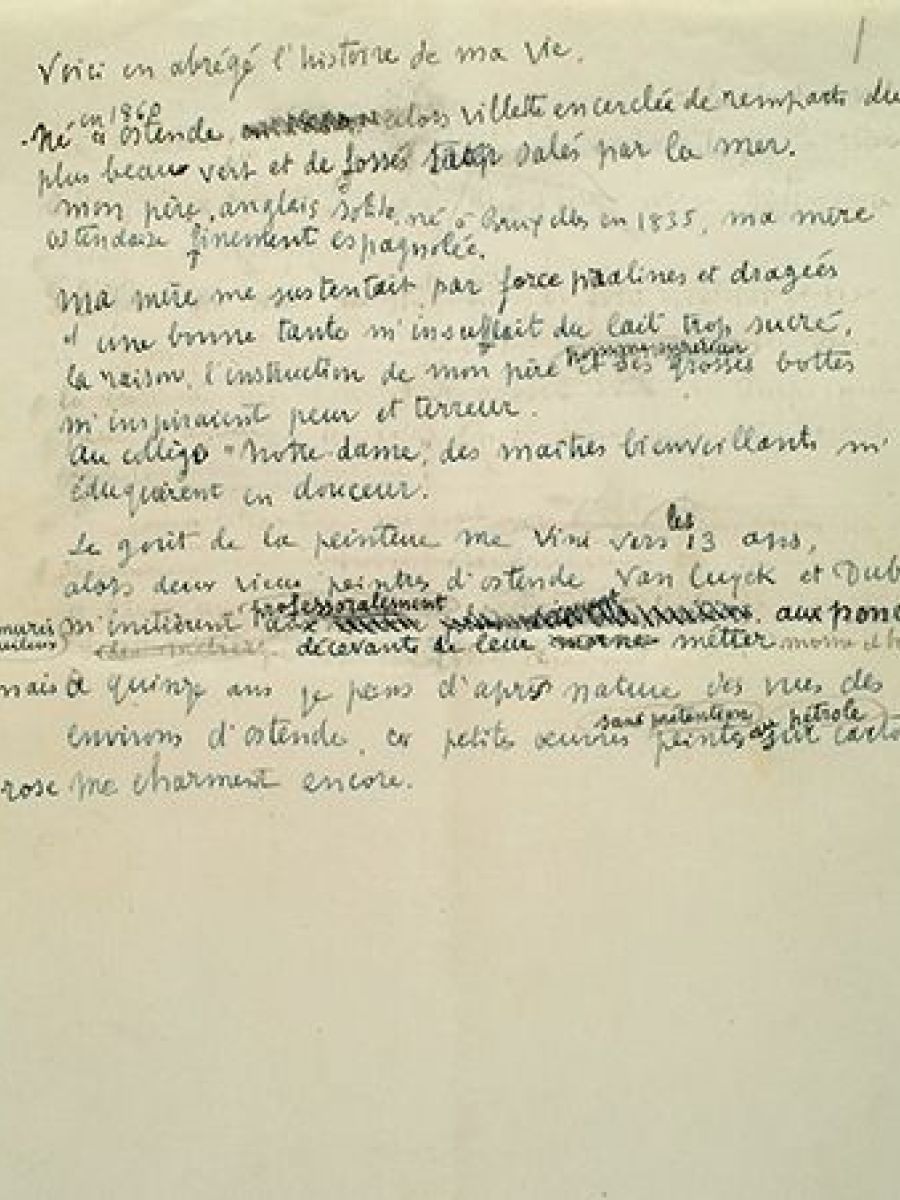 1
Voici en abrégé l'histoire de ma vie.
en 1860
Né à Ostende, alors villette encerclée de remparts du
plus beau vert et de fossés salés par la mer.
Mon père, anglais né à Bruxelles en 1835, ma mère
ostendaise finement espagnolée.
Ma mère me sustentait par force pralines et dragées
et une bonne tante m'insufflait du lait trop sucré.
homme supérieur
la raison, l'instruction de mon père et ses grosses bottes
m'inspiraient peur et terreur.
Au collège "Notre-dame", des maîtres bienveillants m'
éduquèrent en douceur.
les
Le goût de la peinture me vint vers 13 ans,
alors deux vieux peintres d'ostende Van Cuyck et Dub
professoralement
m'initièrent aux aux ponc
décevants de leur morne métier
mais à quinze ans je peins d'après nature des vues des
sans prétention au pétrole
environs d'ostende, ces petites œuvres peintes sur carto
rose me charment encore.